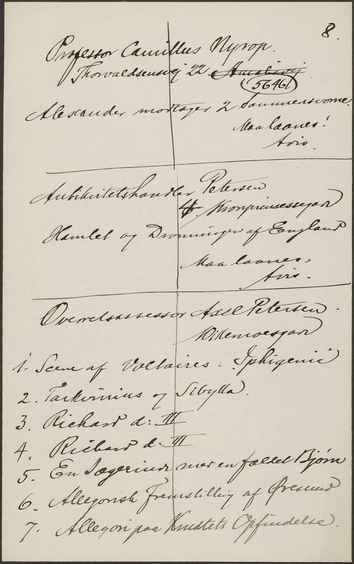 8.
Professor Camillus Nyrop.
Thorvaldsensvej 22
5646
Alexander modtager 2
Maa laanes!
Avis.
Antikvitetshandler Petersen
Kronprinsessegad
Hamlet og Dronningen af England
Maa laanes,
Avis.
Overretsassessor Axel Petersen.
Willemoesgad
1. Scene af Voltaires. Iphigenie
2. Tarkvinius og Sibylla.
3. Richard d: III
4. Richard d: III
5. En Jægerinde med en fældet Bjørn
6. Allegorisk Fremstilling af Øresund
7. Allegori paa Krudtets Opfindelse.